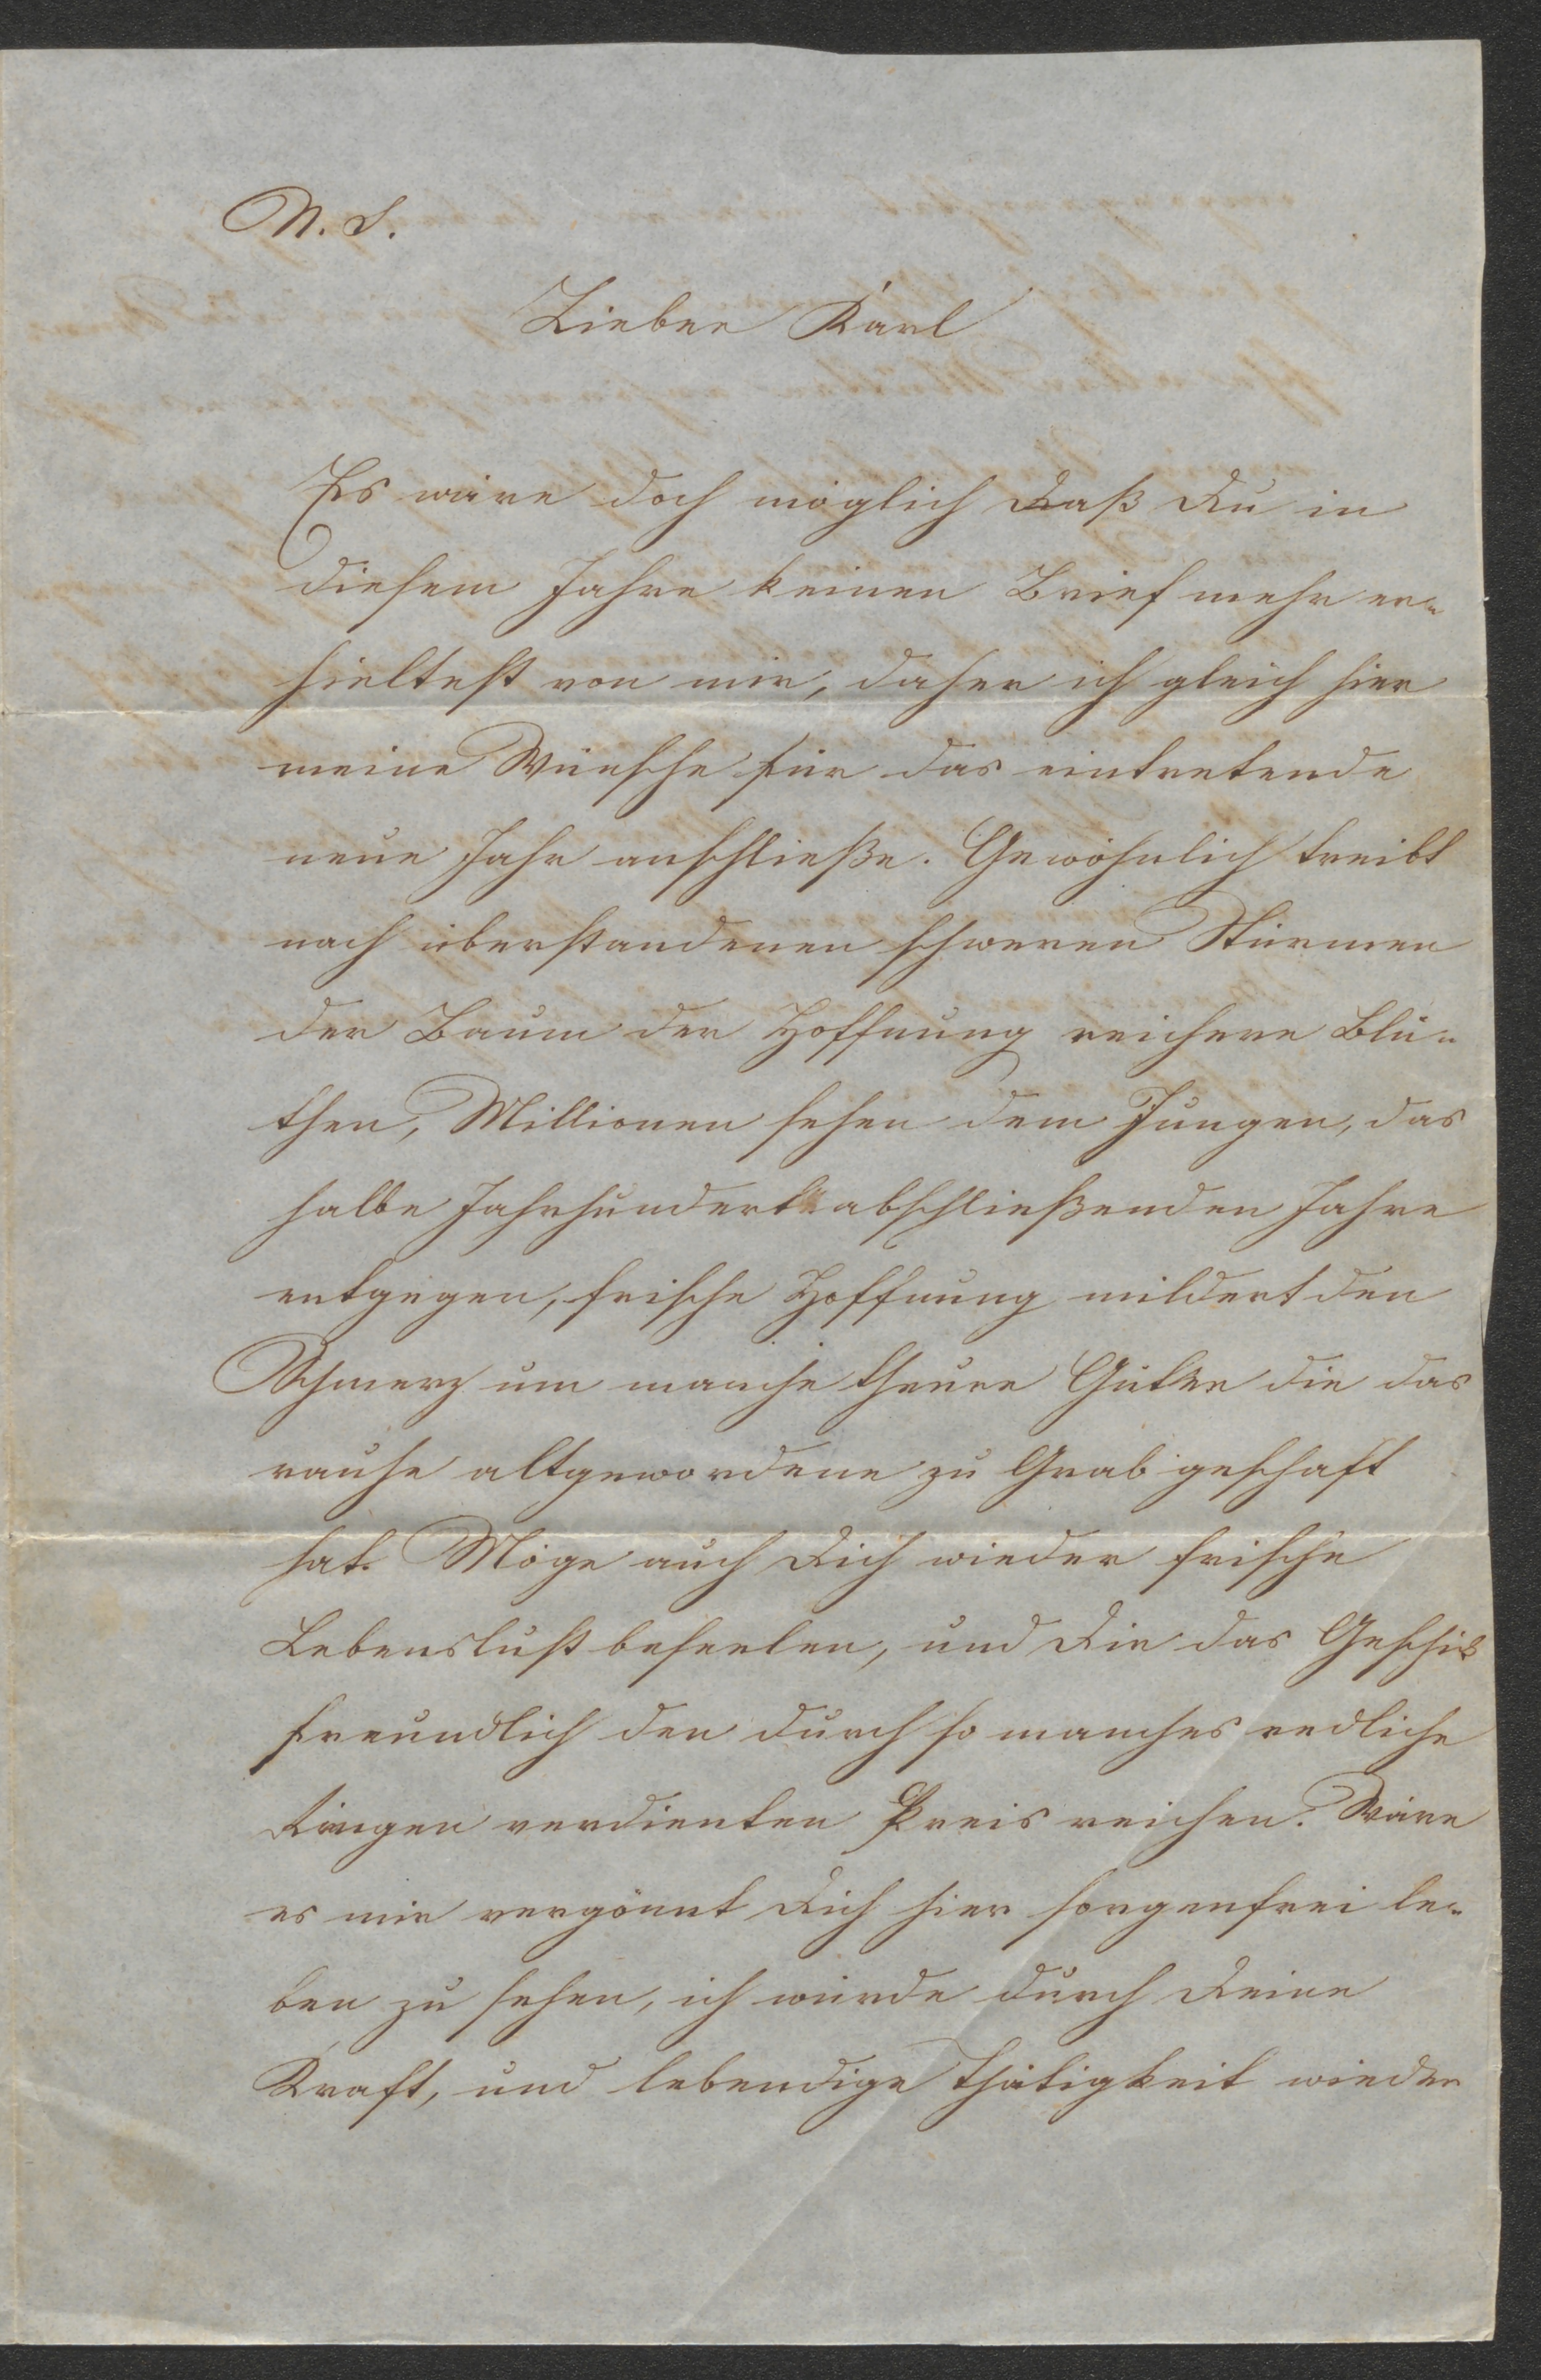 N. S.
Lieber Karl
Es wäre doch möglich daß Du in
diesem Jahre keinen Brief mehr er-
hieltest von mir, daher ich gleich hier
meine Wünsche für das eintretende
neue Jahr anschließe. Gewöhnlich treibt
nach überstandenen schweren Stürmen
der Baum der Hoffnung reichere Blü-
then, Millionen sehen dem Jungen, das
halbe Jahrhundert abschließenden Jahre
entgegen, frische Hoffnung mildert den
Schmerz um manche theure Güter die das
rauhe altgewordene zu Grab geschaft
hat. Möge auch Dich wieder frische
Lebenslust beseelen, und Dir das Geschik
freundlich den durch so manches redliche
Ringen verdienten Preis reichen. Wäre
es mir vergönnt Dich hier sorgenfrei le-
ben zu sehen, ich würde durch Deine
Kraft, und lebendige Thätigkeit wieder